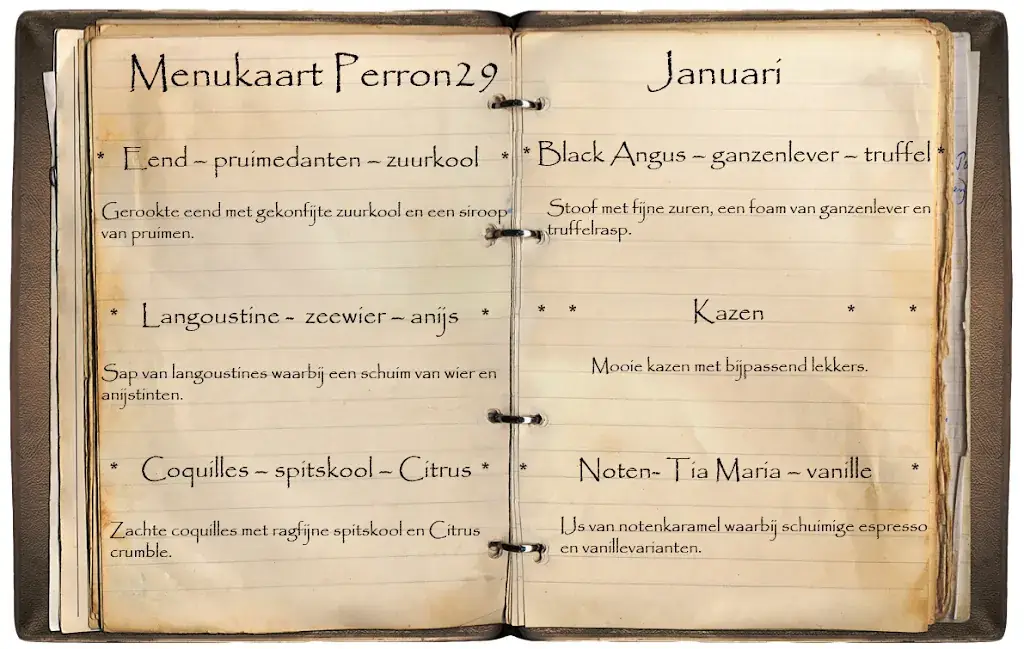 Menukaart Perron29
* Eend – pruimedanten – zuurkool *
Gerookte eend met gekonfijte zuurkool en een siroop
van pruimen.
* Langoustine - zeewier – anijs *
Sap van langoustines waarbij een schuim van wier en
anijstinten.
* Coquilles – spitskool – Citrus *
Zachte coquilles met ragfijne spitskool en Citrus
crumble.
Januari
* Black Angus – ganzenlever – truffel *
Stoof met fijne zuren, een foam van ganzenlever en
truffelrasp.
* * Kazen * *
Mooie kazen met bijpassend lekkers.
* Noten- Tia Maria – vanille *
IJs van notenkaramel waarbij schuimige espresso
en vanillevarianten.